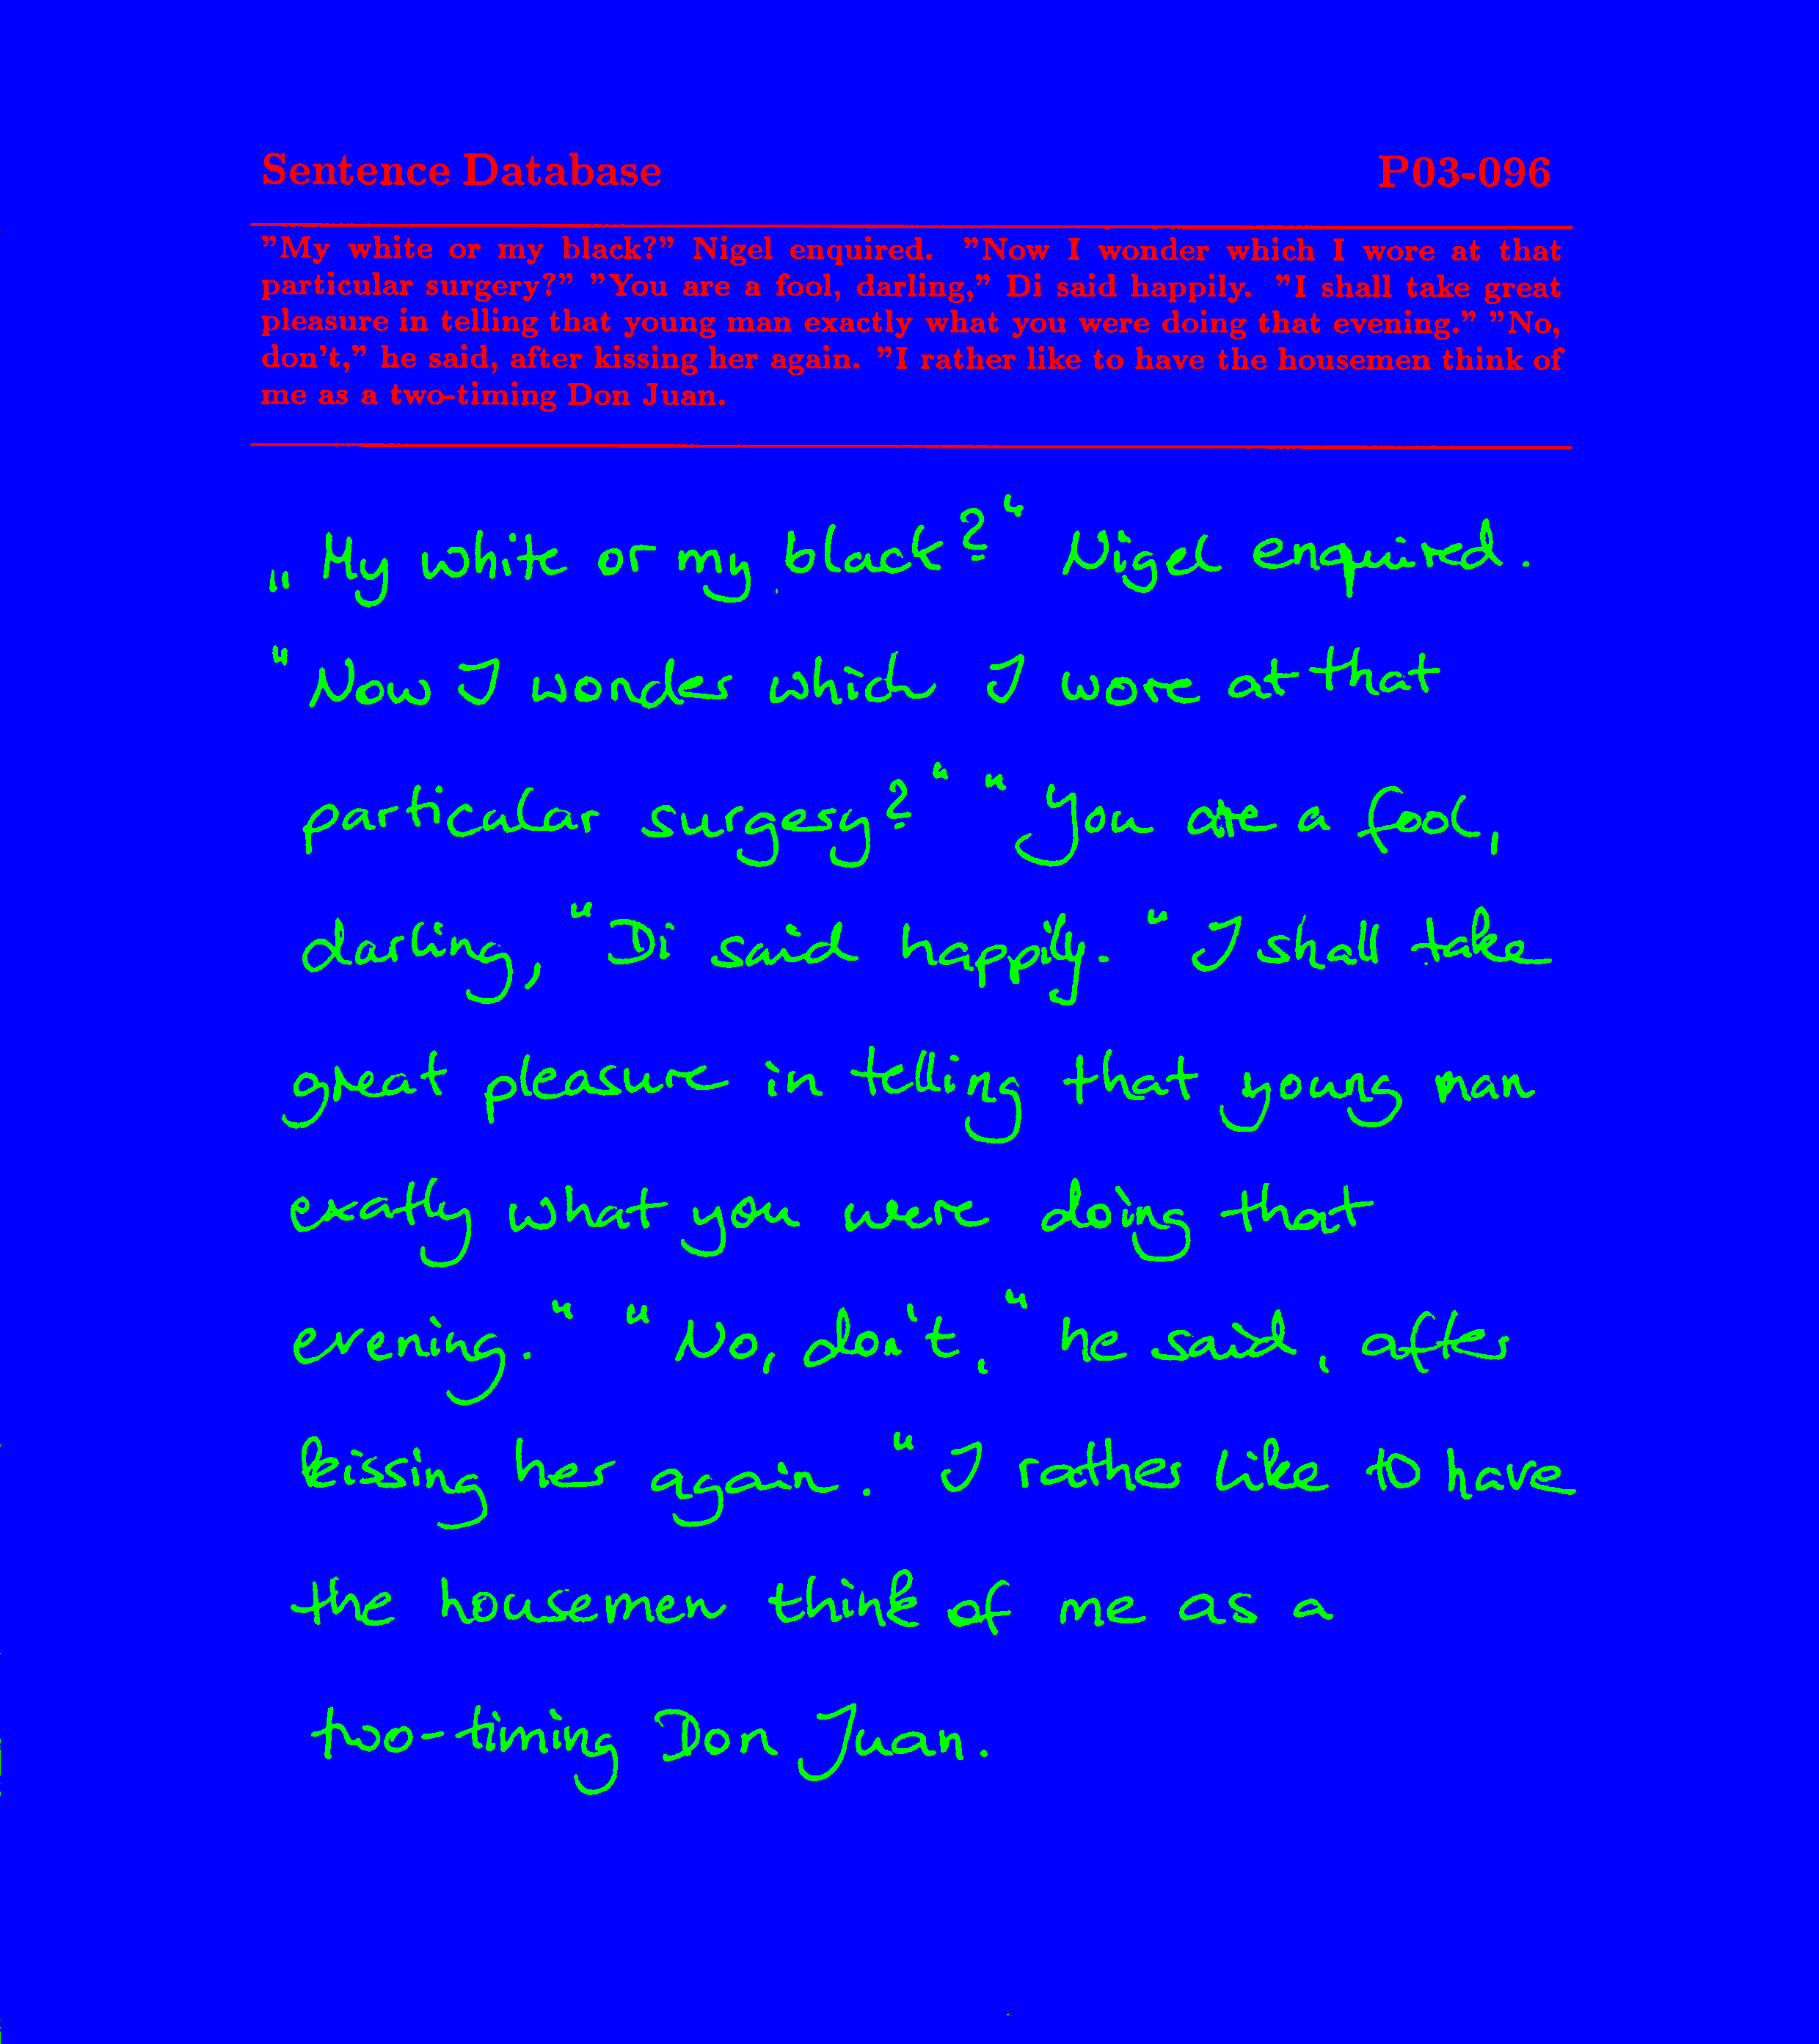 Sentence Database P03-096
"My white or my black?" Nigel enquired. "Now I wonder which I wore at that
particular surgery?" "You are a fool, darling," Di said happily. "I shall take great
pleasure in telling that young man exactly what you were doing that evening." "No,
don't," he said, after kissing her again. "I rather like to have the housemen think of
me as a two-timing Don Juan.
„My white or my black?“ Nigel enquired.
“Now I wonder which I wore at that
particular surgery?“ “You are a fool,
darling,“ Di said happily. “I shall take
great pleasure in telling that young man
exatly what you were doing that
evening.“ “No, don't,“ he said, after
kissing her again. “I rather like to have
the housemen think of me as a
two-timing Don Juan.